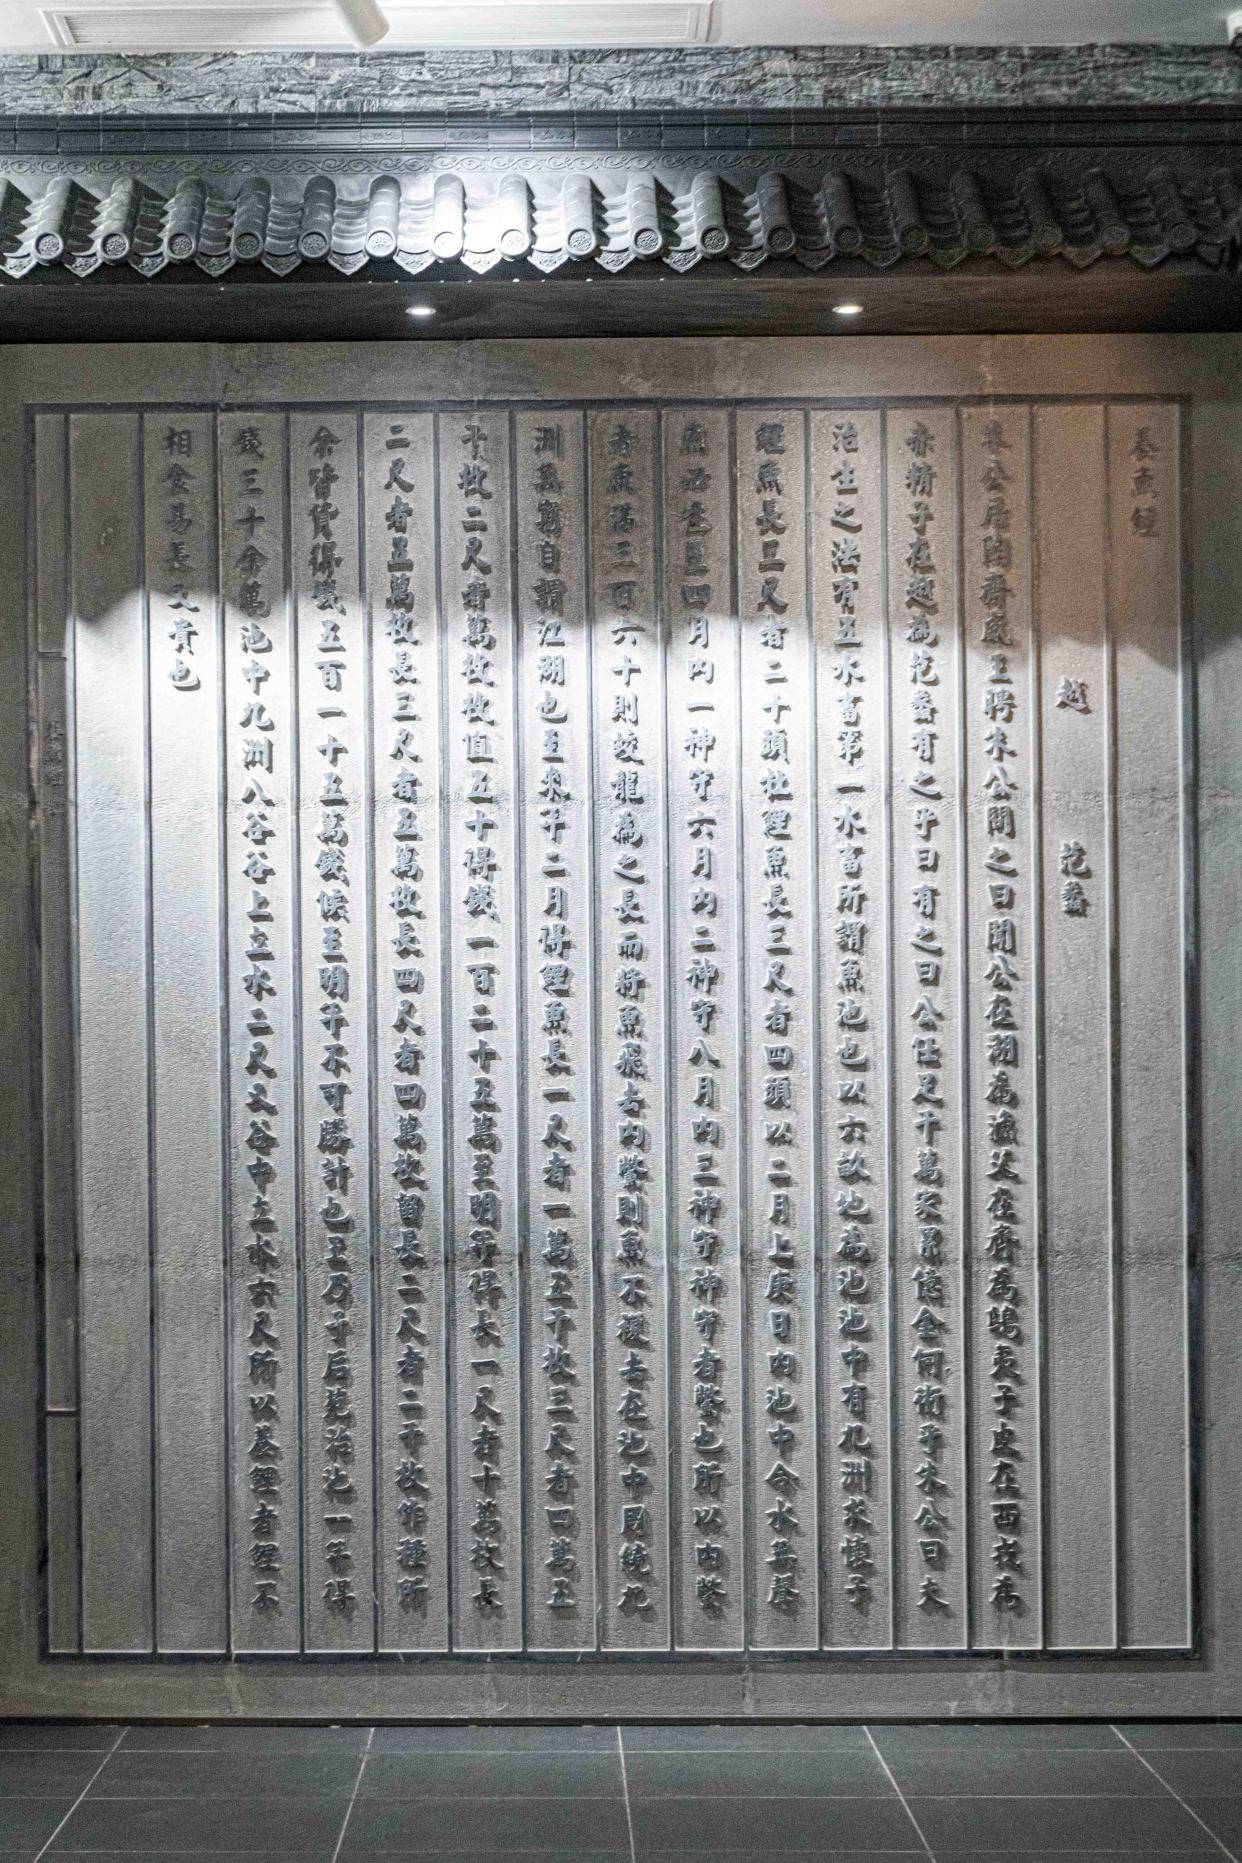 養魚經
越 范蠡
朱公居陶齊威王聘朱公問之曰聞公在湖為漁父在齊為鴟夷子皮在西戎為
赤精子在越為范蠡有之乎曰有之曰公任足千萬家累億金何術乎朱公曰夫
治生之法有五水畜第一水畜所謂魚池也以六畝地為池池中有九洲求懷子
鯉魚長三尺者二十頭牡鯉魚長三尺者四頭以二月上庚日內池中令水無聲
魚必生至四月內一神守六月內二神守八月內三神守神守者鱉也所以內鱉
者魚滿三百六十則蛟龍為之長而將魚飛去內鱉則魚不復去在池中周繞九
洲無窮自謂江湖也至來年二月得鯉魚長一尺者一萬五千枚三尺者四萬五
千枚二尺者萬枚枚值五十得錢一百二十五萬至明年得長一尺者十萬枚長
二尺者五萬枚長三尺者五萬枚長四尺者四萬枚留長二尺者二千枚作種所
余皆貨得錢五百一十五萬錢候至明年不可勝計也王乃于后苑治池一年得
錢三十余萬池中九洲八谷谷上立水二尺又谷中立水六尺所以養鯉者鯉不
相食易長又貴也
養魚經